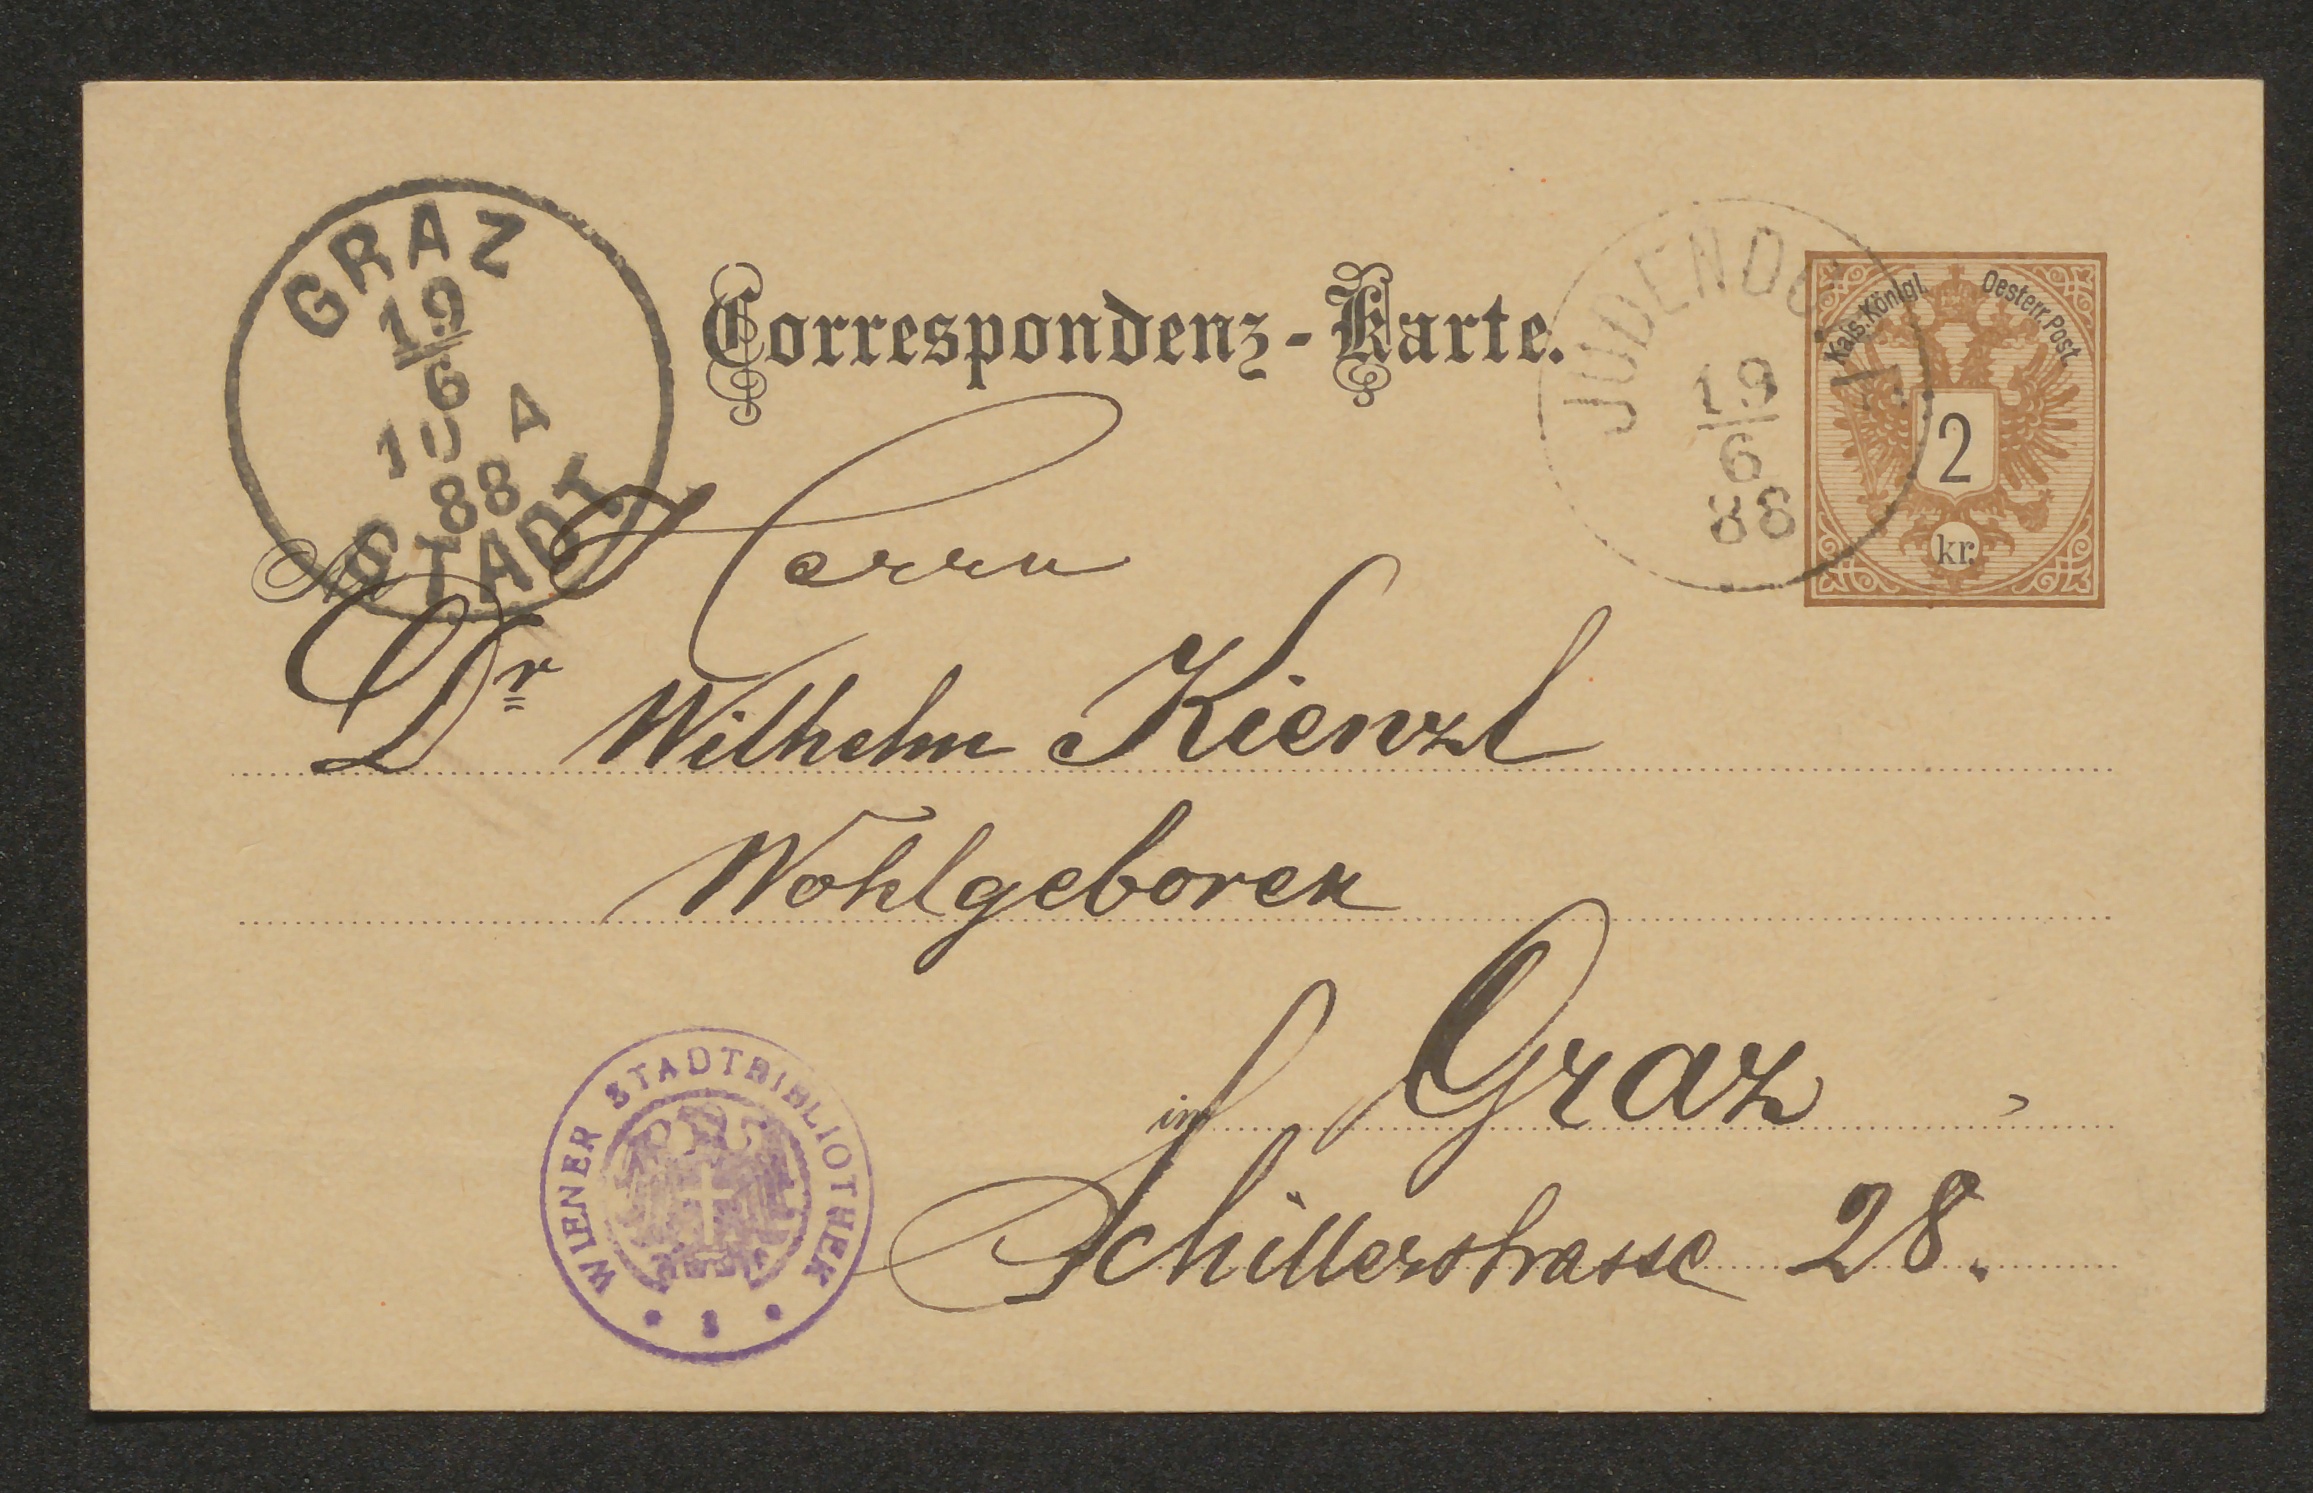 GRAZ
19
6
10 A
88
STADT.
Correspondenz-Karte.
19
6
88
Kais.Königl. Oesterr.Post.
2
kr.
An
Herrn
Dr Wilhelm Kienzl
Wohlgeboren
in Graz,
Schillerstrasse 28.
WIENER STADTBIBLIOTHEK